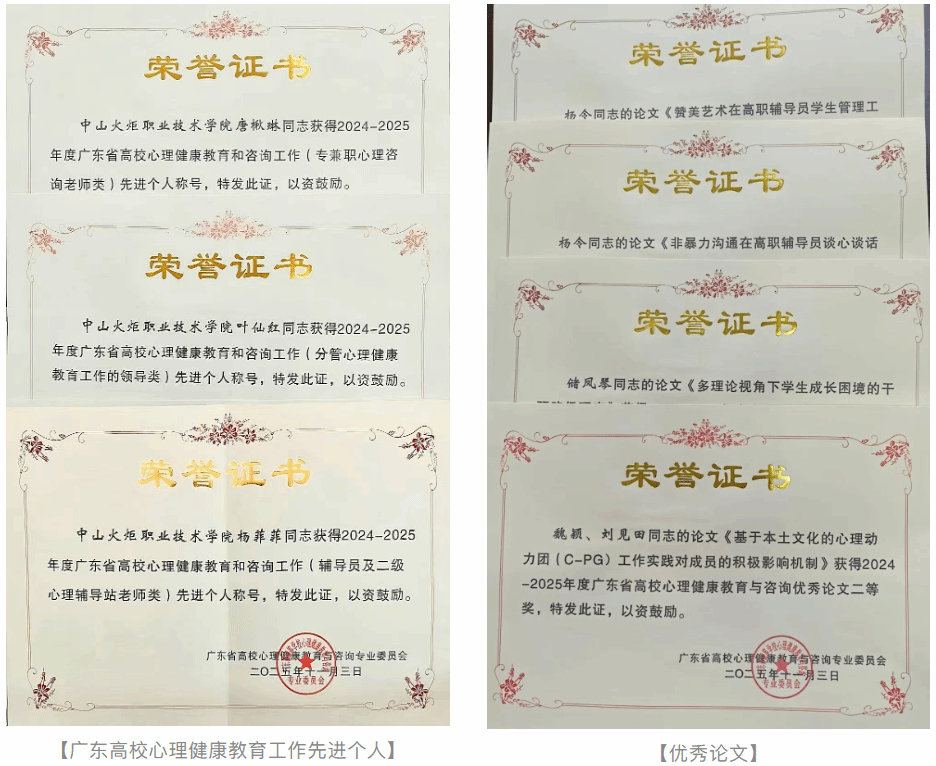 荣誉证书
中山火炬职业技术学院唐楸琳同志获得2024-2025
年度广东省高校心理健康教育和咨询工作（专兼职心理咨
询老师类）先进个人称号，特发此证，以资鼓励。
荣誉证书
中山火炬职业技术学院叶仙红同志获得2024-2025
年度广东省高校心理健康教育和咨询工作（分管心理健康
教育工作的领导类）先进个人称号，特发此证，以资鼓励。
荣誉证书
中山火炬职业技术学院杨菲菲同志获得2024-2025
年度广东省高校心理健康教育和咨询工作（辅导员及二级
心理辅导站老师类）先进个人称号，特发此证，以资鼓励。
广东省高校心理健康教育与咨询专业委员会
二〇二五年十一月三日
专业委员会
【广东高校心理健康教育工作先进个人】
荣誉证书
杨令同志的论文《赞美艺术在高职辅导员学生管理工
荣誉证书
杨令同志的论文《非暴力沟通在高职辅导员谈心谈话
荣誉证书
储凤琴同志的论文《多理论视角下学生成长困境的干
荣誉证书
魏颖、刘见田同志的论文《基于本土文化的心理动
力团（C-PG）工作实践对成员的积极影响机制》获得2024
-2025年度广东省高校心理健康教育与咨询优秀论文二等
奖，特发此证，以资鼓励。
广东省高校心理健康教育与咨询专业委员会
二〇二五年十一月三日
专业委员会
【优秀论文】